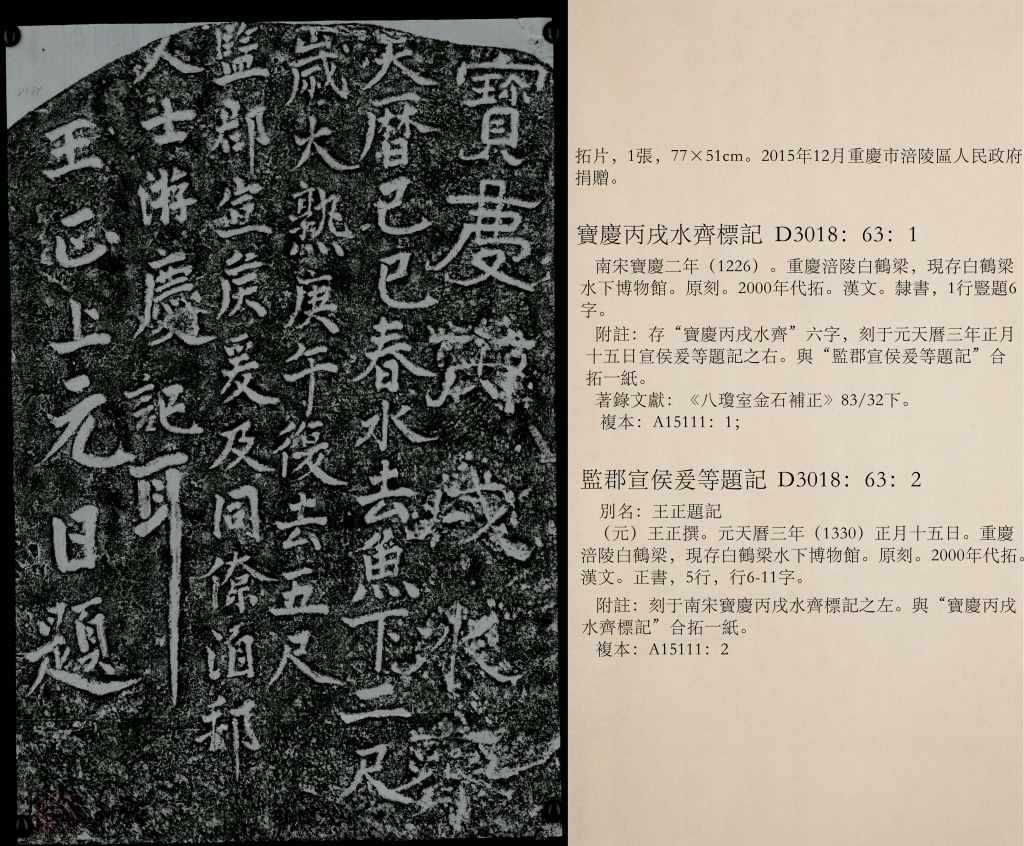 寶慶丙戌水齊
天曆己巳春水去魚下二尺
歲大熟庚午復去五尺
監郡宣侯爰及同僚洎郡
人士游慶記耳
王正上元日題
拓片，1張，77×51cm。2015年12月重慶市涪陵區人民政府
捐贈。
寶慶丙戌水齊標記 D3018：63：1
南宋寶慶二年（1226）。重慶涪陵白鶴梁，現存白鶴梁
水下博物館。原刻。2000年代拓。漢文。隸書，1行豎題6
字。
附註：存“寶慶丙戌水齊”六字，刻于元天曆三年正月
十五日宣侯爰等題記之右。與“監郡宣侯爰等題記”合
拓一紙。
著錄文獻：《八瓊室金石補正》83/32下。
複本：A15111：1；
監郡宣侯爰等題記 D3018：63：2
別名：王正題記
（元）王正撰。元天曆三年（1330）正月十五日。重慶
涪陵白鶴梁，現存白鶴梁水下博物館。原刻。2000年代拓。
漢文。正書，5行，行6-11字。
附註：刻于南宋寶慶丙戌水齊標記之左。與“寶慶丙戌
水齊標記”合拓一紙。
複本：A15111：2